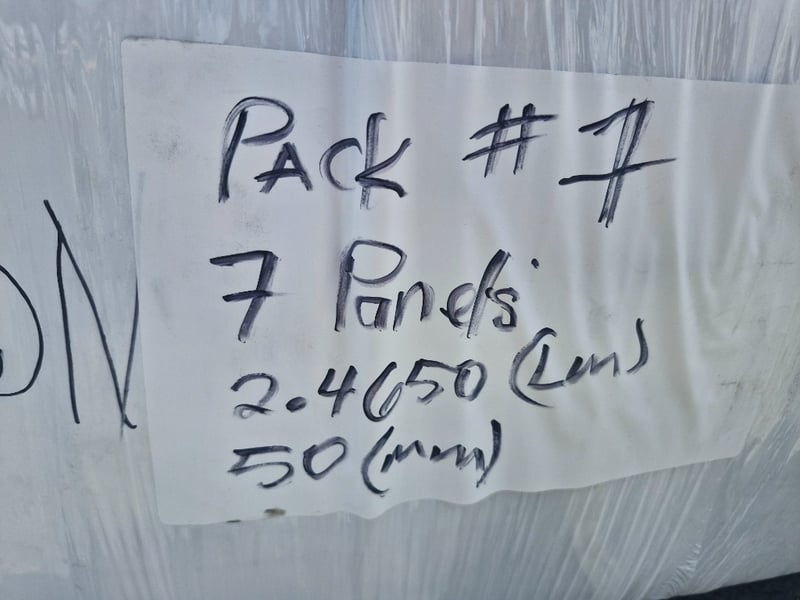 Pack #7
7 Panels
2.4650 (Lm)
50 (mm)
ON